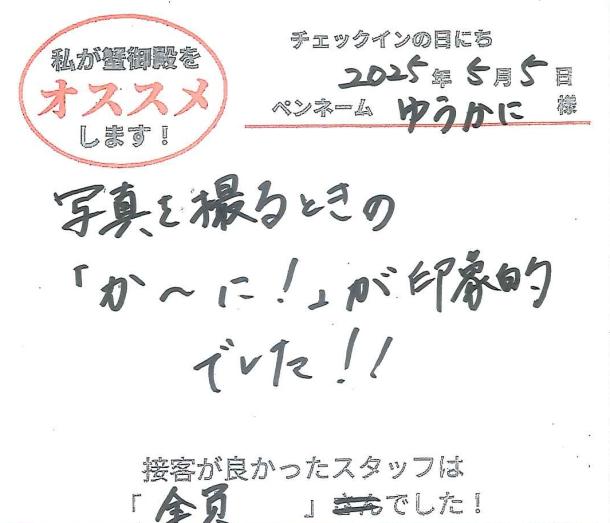 私が蟹御殿を
オススメ
します！
チェックインの日にち
2025年5月5日
ペンネーム ゆうかに 様
写真を撮るときの
「か〜に！」が印象的
でした！！
接客が良かったスタッフは
「全員」さんでした！